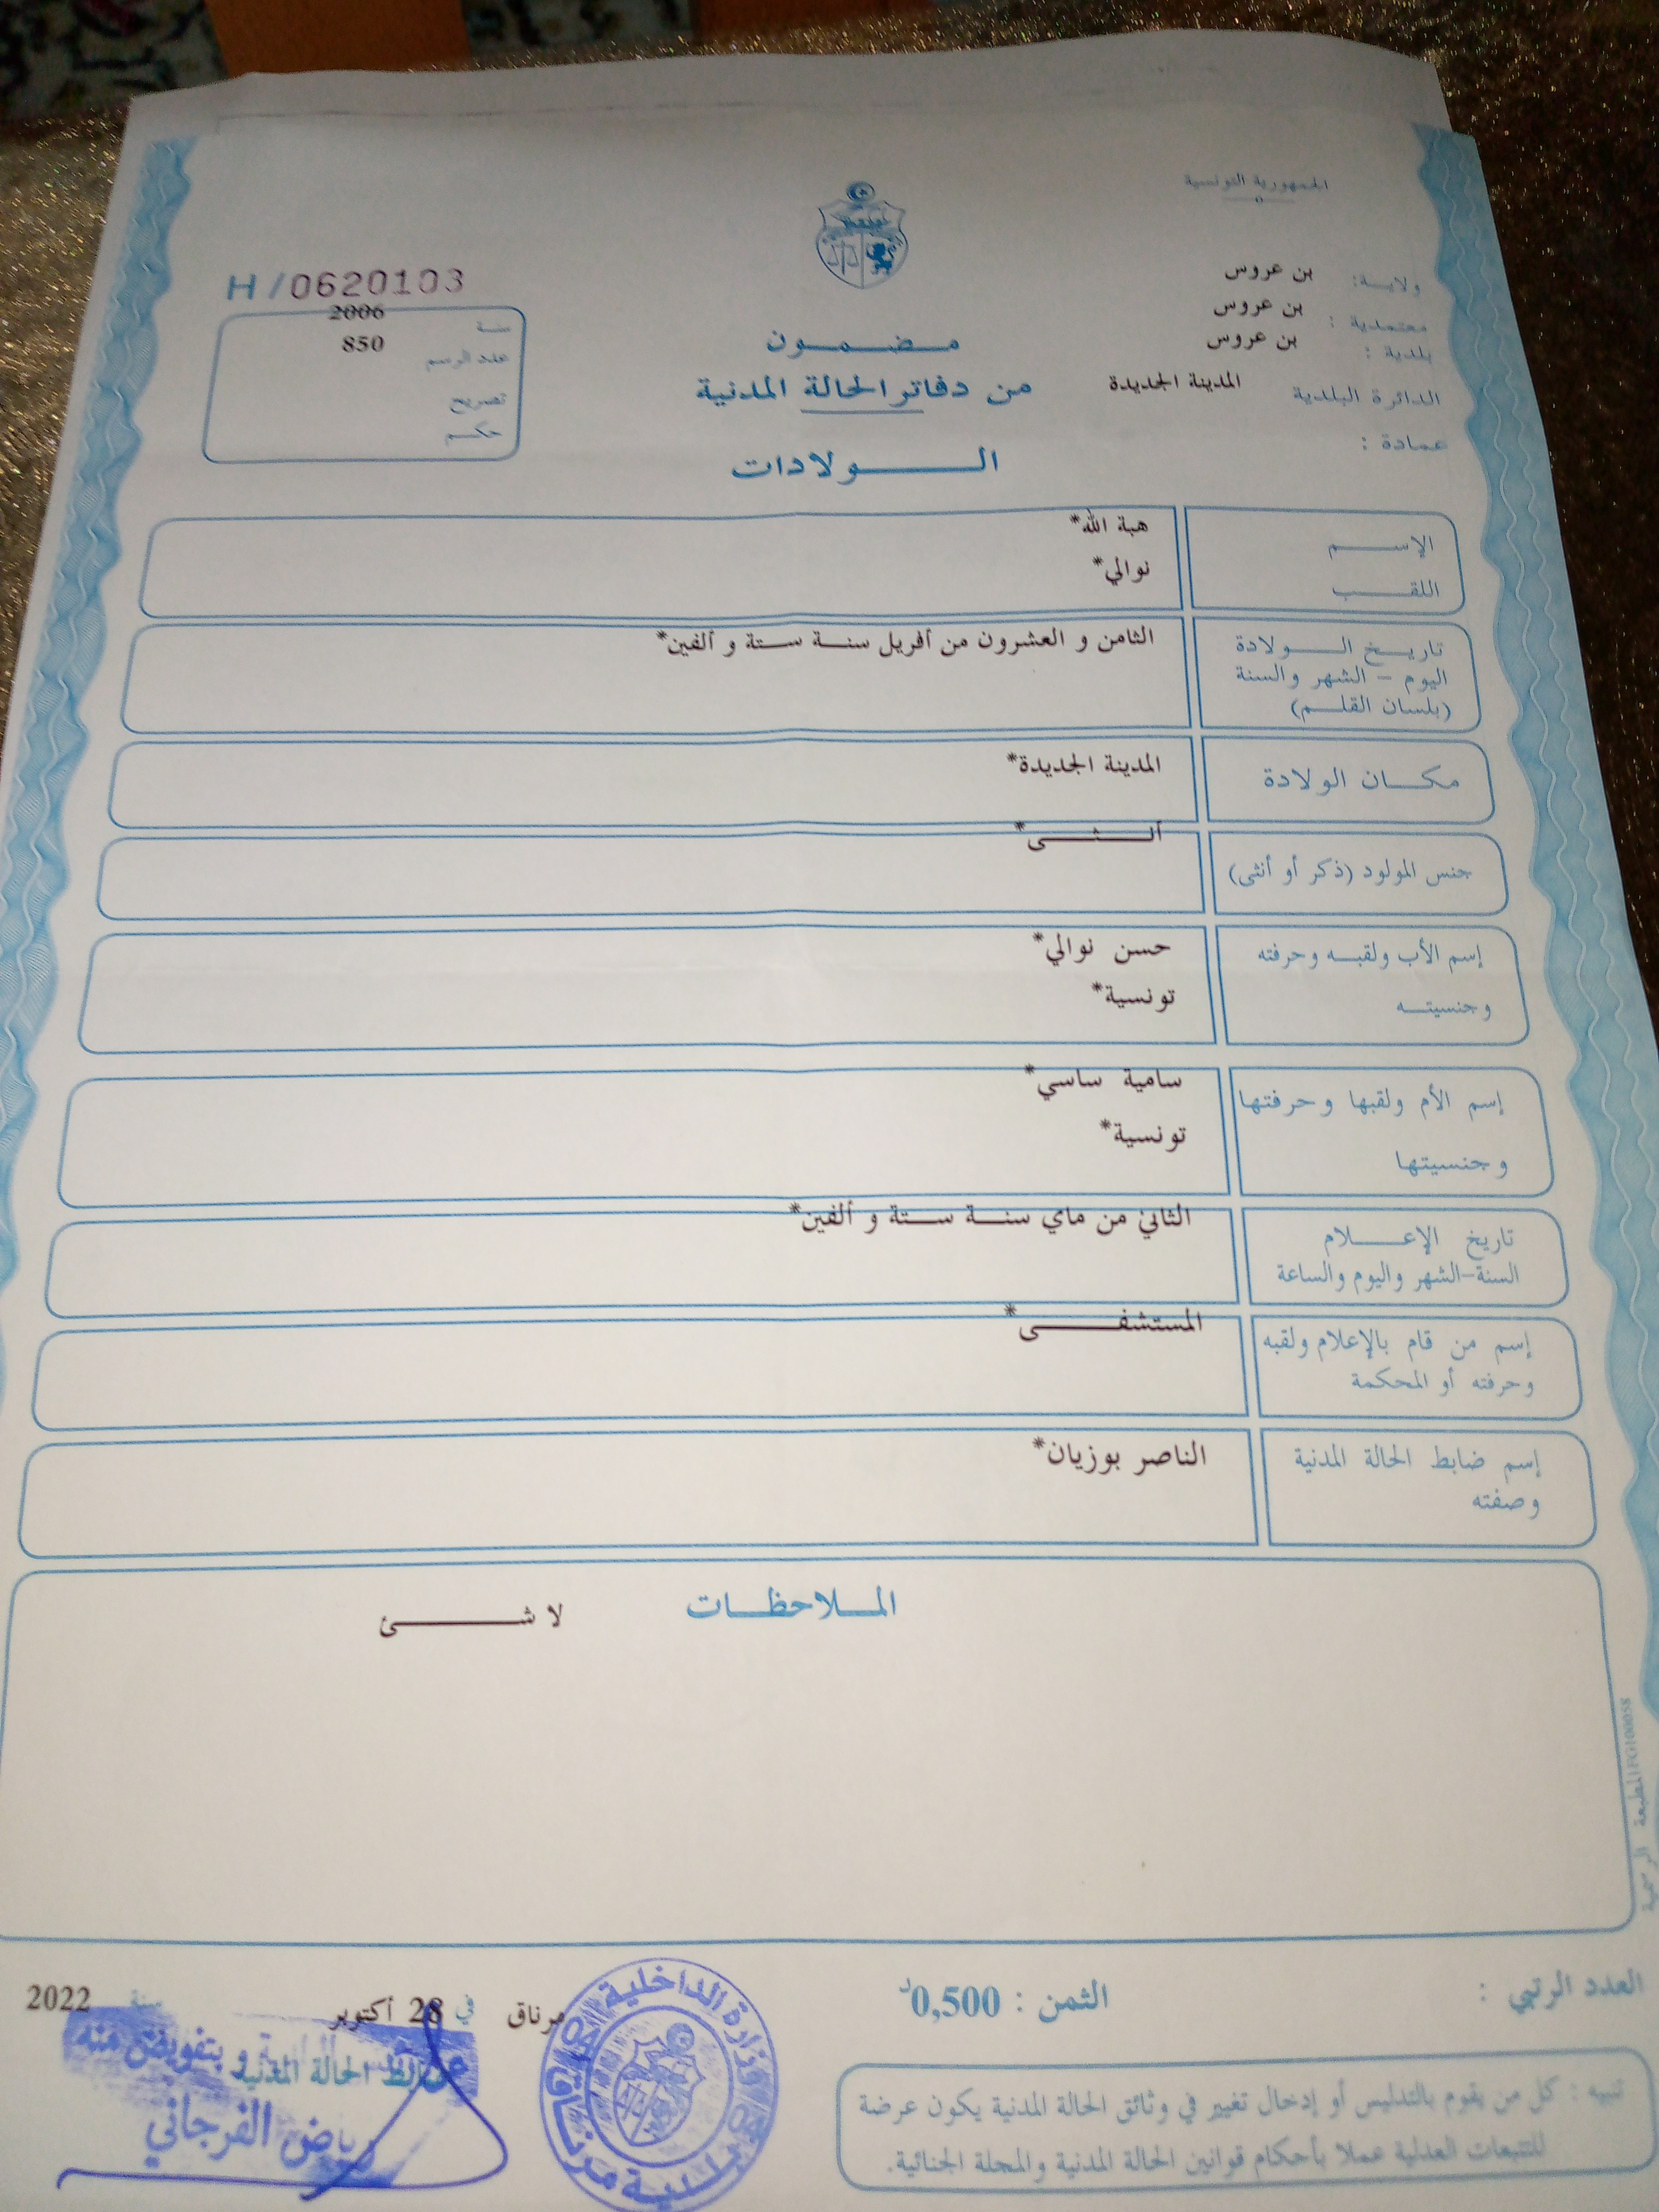 الجمهورية التونسية
ولاية: بن عروس
معتمدية : بن عروس
بلدية : بن عروس
الدائرة البلدية المدينة الجديدة
عمادة :
H/0620103
سنة 2006
عدد الرسم 850
تصريح
حكم
مضمون
من دفاتر الحالة المدنية
الولادات
الإسم هبة الله*
اللقب نوالي*
تاريخ الولادة الثامن و العشرون من أفريل سنة ستة و ألفين*
اليوم - الشهر والسنة
(بلسان القلم)
مكان الولادة المدينة الجديدة*
جنس المولود (ذكر أو أنثى) أنثى*
إسم الأب ولقبه وحرفته حسن نوالي*
وجنسيته تونسية*
إسم الأم ولقبها وحرفتها سامية ساسي*
وجنسيتها تونسية*
تاريخ الإعلام الثاني من ماي سنة ستة و ألفين*
السنة-الشهر واليوم والساعة
إسم من قام بالإعلام ولقبه المستشفى*
وحرفته أو المحكمة
إسم ضابط الحالة المدنية الناصر بوزيان*
وصفته
الملاحظات
لا شئ
المطبعة الرسمية
العدد الرتبي :
الثمن : 0,500 د
مرناق في 28 أكتوبر سنة 2022
ضابط الحالة المدنية
و بتفويض منه
رياض الفرجاني
وزارة الداخلية
بلدية مرناق
تنبيه : كل من يقوم بالتدليس أو إدخال تغيير في وثائق الحالة المدنية يكون عرضة
للتتبعات العدلية عملا بأحكام قوانين الحالة المدنية والمجلة الجنائية.